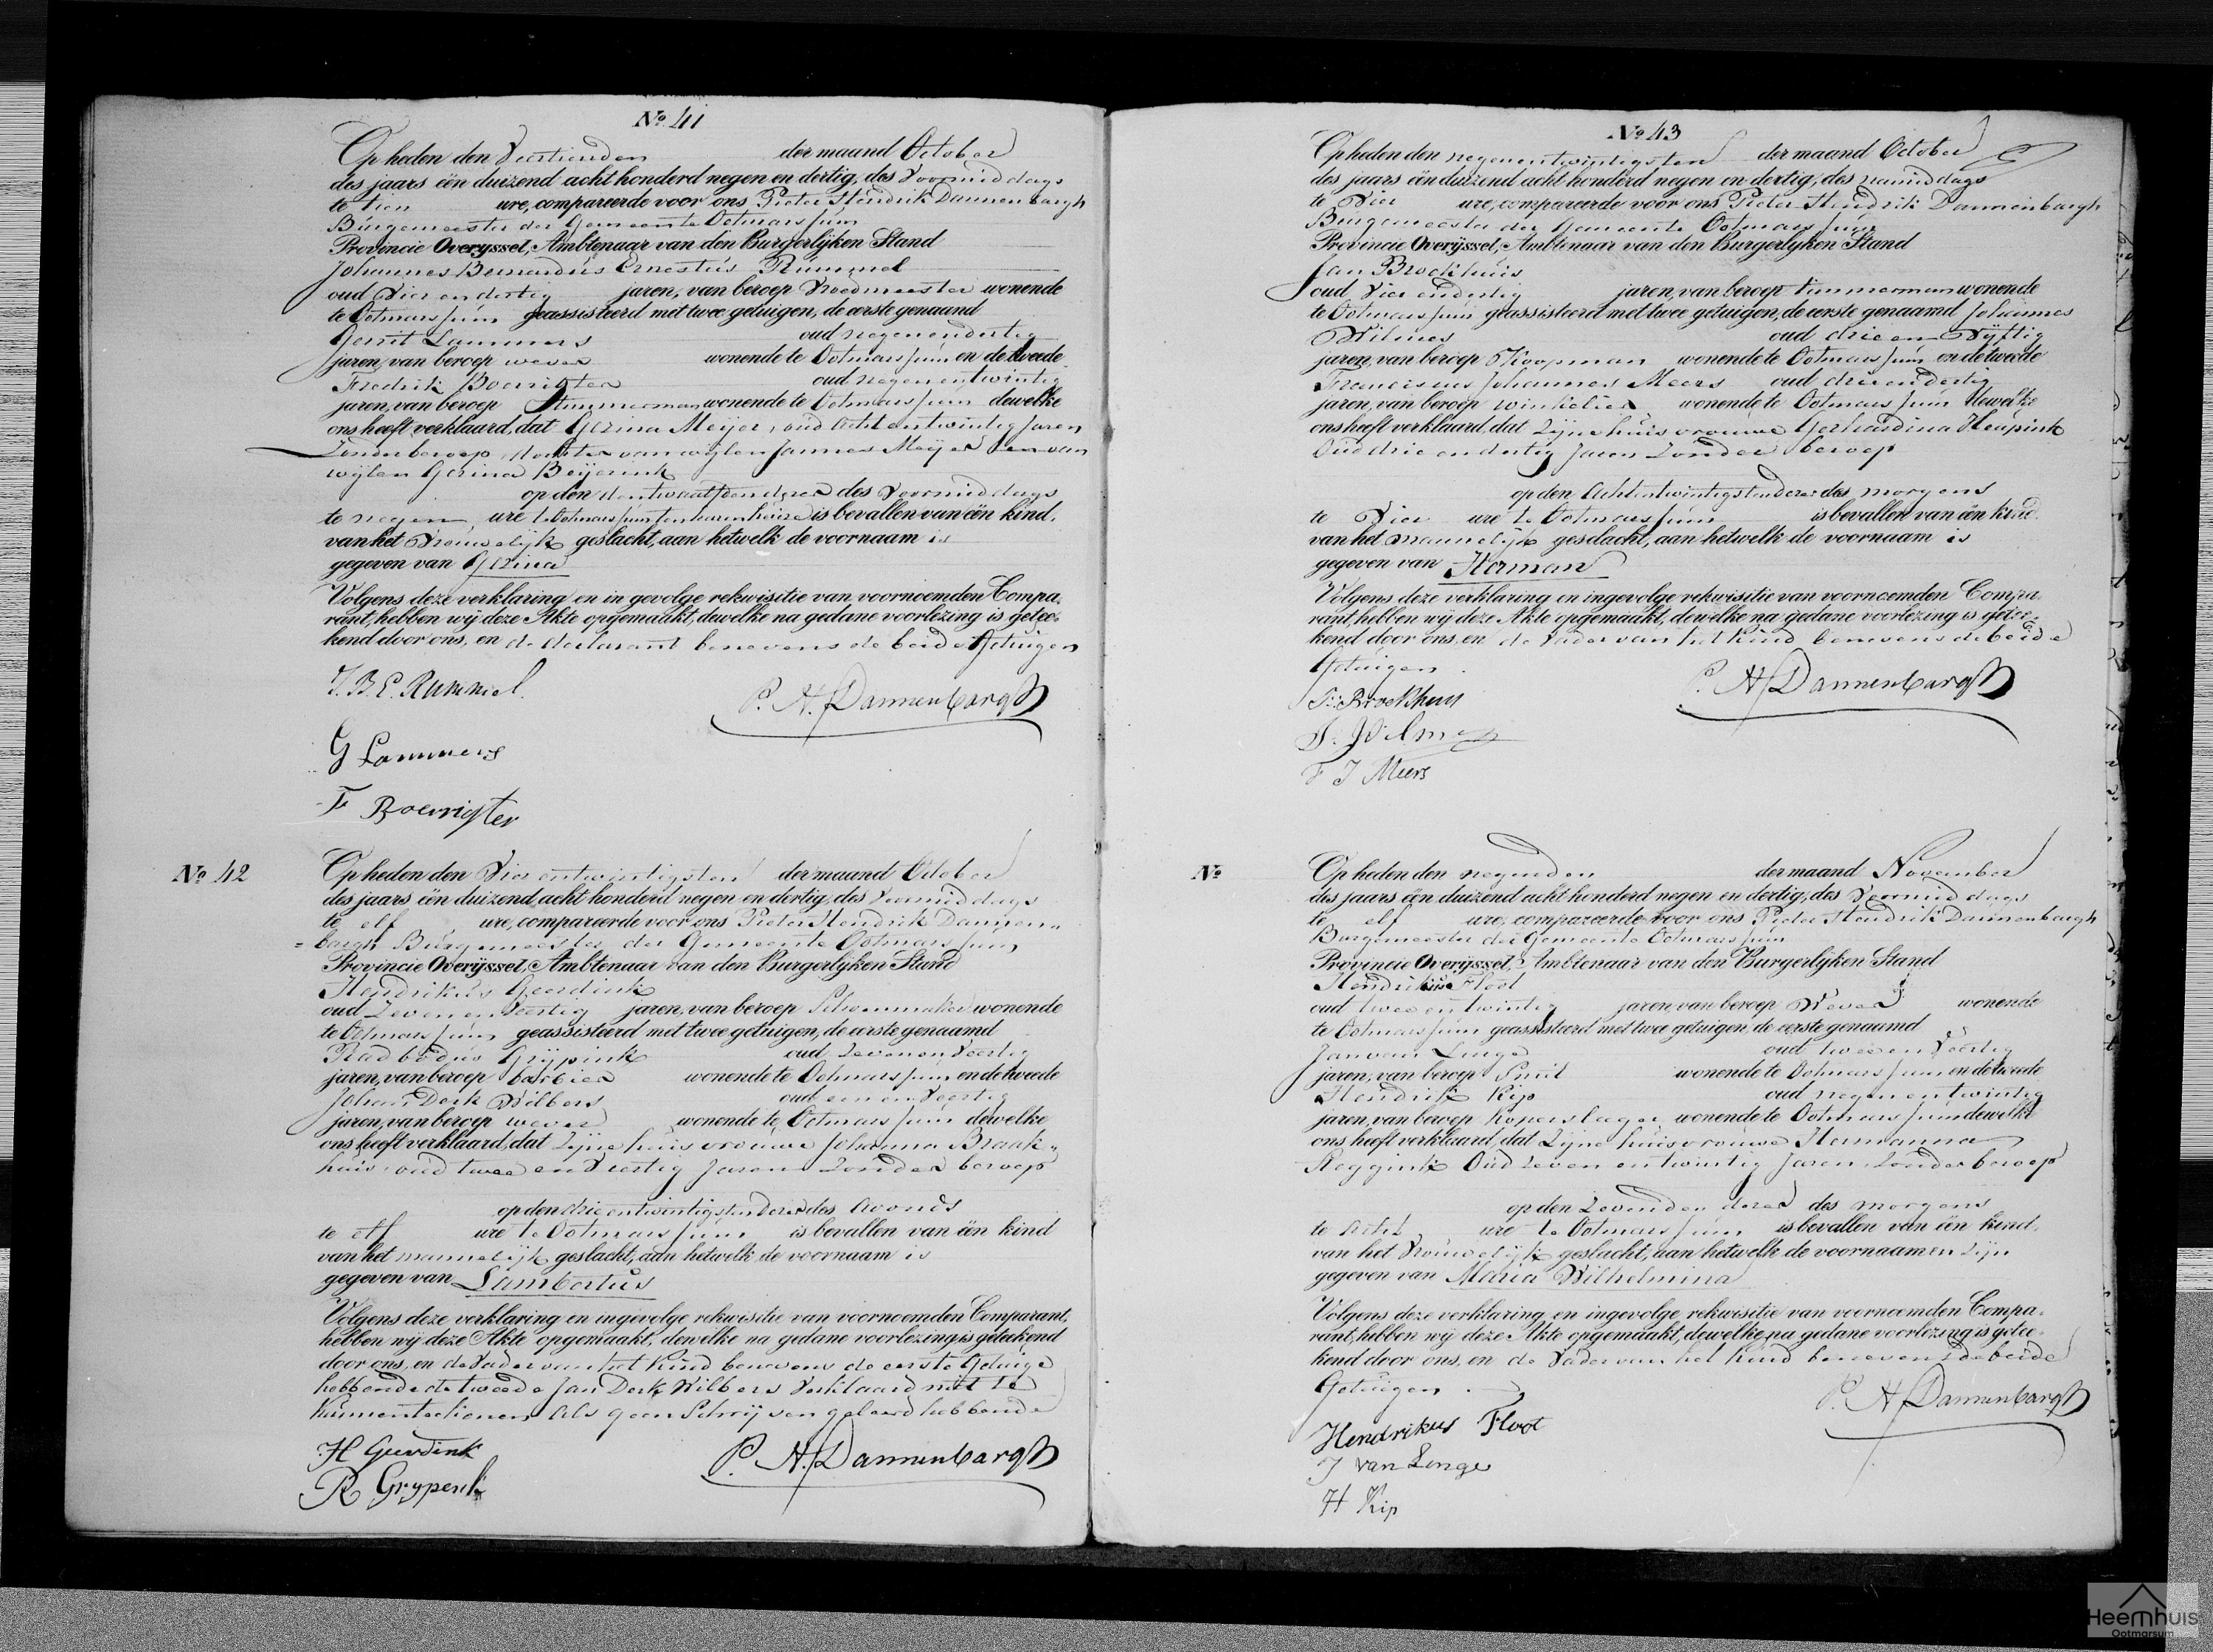 Nº 41
Op heden den Veertienden der maand October
des jaars één duizend acht honderd negen en dertig, des Voormiddags
te tien ure, compareerde voor ons Pieter Hendrik Dannenbargh
Burgemeester der Gemeente Ootmarsum
Provincie Overijssel, Ambtenaar van den Burgerlijken Stand
Johannes Bernardus Ernestus Rummel
oud Vier en dertig jaren, van beroep Vroedmeester wonende
te Ootmarsum geassisteerd met twee getuigen, de eerste genaamd
Gerrit Lammers oud negenendertig
jaren, van beroep wever wonende te Ootmarsum en de tweede
Fredrik Boerrigter oud negenentwintig
jaren, van beroep timmerman wonende te Ootmarsum dewelke
ons heeft verklaard, dat Gezina Meijer, oud Achtentwintig Jaren
Zonder beroep, dochter van wijlen Jannes Meijer en van
wijlen Gezina Beijerink
op den dezer des Voormiddags
te negen ure te Ootmarsum ten haren huize is bevallen van één kind,
van het Vrouwelijk geslacht, aan hetwelk de voornaam is
gegeven van Gezina
Volgens deze verklaring en in gevolge rekwisitie van voornoemden Compa-
rant, hebben wij deze Akte opgemaakt, dewelke na gedane voorlezing is getee-
kend door ons, en de declarant benevens de beide Getuigen
J. B. E. Rummel.
P. H. Dannenbargh
G Lammers
F Boerrigter
Nº 42
Op heden den Vier entwintigsten der maand October
des jaars één duizend acht honderd negen en dertig, des Voormiddags
te elf ure, compareerde voor ons Pieter Hendrik Dannen„
=bargh Burgemeester der Gemeente Ootmarsum
Provincie Overijssel, Ambtenaar van den Burgerlijken Stand
Hendrikus Geerdink
oud Zeven en Veertig jaren, van beroep Schoenmaker wonende
te Ootmarsum geassisteerd met twee getuigen, de eerste genaamd
Radbodus Grijpink oud Zeven en Veertig
jaren, van beroep barbier wonende te Ootmarsum en de tweede
Johan Derk Wilbers oud een en Veertig
jaren, van beroep wever wonende te Ootmarsum dewelke
ons heeft verklaard, dat Zijne huisvrouwe Johanna Braak„
huis oud twee en Veertig Jaren Zonder beroep
op den drie entwintigsten dezer des Avonds
te elf ure te Ootmarsum is bevallen van één kind
van het mannelijk geslacht, aan hetwelk de voornaam is
gegeven van Lambertus
Volgens deze verklaring en ingevolge rekwisitie van voornoemden Comparant,
hebben wij deze Akte opgemaakt, dewelke na gedane voorlezing is geteekend
door ons, en de Vader van het Kind benevens de eerste Getuige
hebbende de tweede Jan Derk Wilbers Verklaard niet te
kunnen teekenen Als geen Schrijven geleerd hebbende
H Geerdink
P. H. Dannenbargh
R Grypenk
Nº 43
Op heden den negenentwintigsten der maand October
des jaars één duizend acht honderd negen en dertig, des namiddags
te Vier ure, compareerde voor ons Pieter Hendrik Dannenbargh
Burgemeester der Gemeente Ootmarsum
Provincie Overijssel, Ambtenaar van den Burgerlijken Stand
Jan Broekhuis
oud Vier endertig jaren, van beroep timmerman wonende
te Ootmarsum geassisteerd met twee getuigen, de eerste genaamd Johannes
Wilmes oud drie en Vijftig
jaren, van beroep Koopman wonende te Ootmarsum en de tweede
Franciscus Johannes Meers oud drieendertig
jaren, van beroep winkelier wonende te Ootmarsum dewelke
ons heeft verklaard, dat Zijne huisvrouwe Gerhardina Heupink
Oud drie en dertig Jaren Zonder beroep
op den Achtentwintigsten dezer des morgens
te Vier ure te Ootmarsum is bevallen van één kind.
van het mannelijk geslacht, aan hetwelk de voornaam is
gegeven van Herman
Volgens deze verklaring en ingevolge rekwisitie van voornoemden Compa
rant, hebben wij deze Akte opgemaakt, dewelke na gedane voorlezing is getee-
kend door ons, en de Vader van het Kind benevens de beide
Getuigen.
P. H. Dannenbargh
J: Broekhuis
J. Wilmes
F J Meers
Nº
Op heden den negenden der maand November
des jaars één duizend acht honderd negen en dertig, des Voormiddags
te elf ure, compareerde voor ons Pieter Hendrik Dannenbargh
Burgemeester der Gemeente Ootmarsum
Provincie Overijssel, Ambtenaar van den Burgerlijken Stand
Hendrikus Floot
oud twee entwintig jaren, van beroep Wever wonende
te Ootmarsum geassisteerd met twee getuigen, de eerste genaamd
Jan van Linge oud twee en Veertig
jaren, van beroep Smit wonende te Ootmarsum en de tweede
Hendrik Kip oud negen entwintig
jaren, van beroep Koperslager wonende te Ootmarsum dewelke
ons heeft verklaard, dat Zijne huisvrouwe Hermanna
Reggink Oud Zeven entwintig Jaren Zonder beroep
op den Zevenden dezer des morgens
te Acht ure te Ootmarsum is bevallen van één kind,
van het Vrouwelijk geslacht, aan hetwelk de voornaamen Zijn
gegeven van Maria Wilhelmina
Volgens deze verklaring en ingevolge rekwisitie van voornoemden Compa-
rant, hebben wij deze Akte opgemaakt, dewelke na gedane voorlezing is getee-
kend door ons, en de Vader van het Kind benevens de beide
Getuigen.
P. H. Dannenbargh
Hendrikus Floot
J van Linge
H Kip
Heemhuis
Ootmarsum